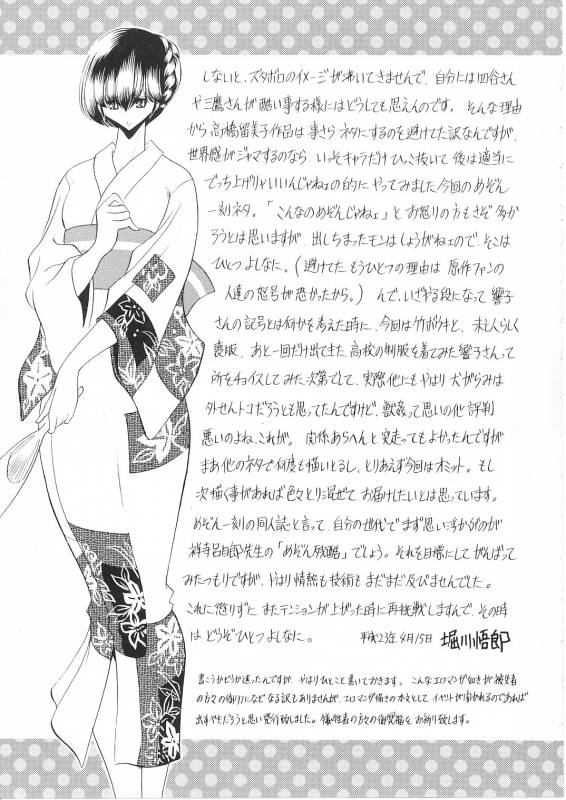 しないと、ズタボロのイメージが沸いてきませんで、自分には四谷さん
や三鷹さんが酷い事する様にはどうしても思えんのです。そんな理由
から高橋留美子作品は事さらネタにするのを避けてた訳なんですが、
世界感がジャマするのなら いっそキャラだけひっこ抜いて後は適当に
でっち上げりゃいいんじゃねェの的に やってみました今回のめぞん
一刻ネタ。「こんなのめぞんじゃねェ」と お怒りの方もさぞ多か
ろうとは思いますが、出しちまったモンはしょうがねェので、そこは
ひとつよしなに。(避けてた もうひとつの理由は 原作ファンの
人達の怒号が恐かったから。) んで、いざやる段になって 響子
さんの記号とは何かを考えた時に、今回は竹ボウキと、未亡人らしく
喪服、あと一回だけ出てきた高校の制服を着てみた響子さんって
所をチョイスしてみた次第でして、実際他にもやはり犬がらみは
外せんトコだろうとも思ってたんですけど、獣姦って思いの他 評判
悪いのよね、これが。関係あらへんと突走ってもよかったんですが
まあ他のネタで何度も描いとるし、とりあえず今回はオミット。もし
次描く事があれば色々とり混ぜて お届けしたいとは思っています。
めぞん一刻の同人誌と言って、自分の世代でまず思い浮かぶのが
祥寺呂自郎先生の「めぞん残酷」でしょう。それを目標にして がんばって
みたつもりですが、やはり情熱も技術も まだまだ及びませんでした。
これに懲りずに またテンションが上がった時に再挑戦しますんで、その時
は どうぞひとつよしなに。 平成23年4月15日 堀川悟郎
書こうかどうか迷ったんですが、やはりひとこと書いておきます。こんなエロマンガ如きが 被災者
の方々の術りになどなる訳もありませんが、エロマンガ描きの本文として イベントが開かれるのであれば
出すべきだろうと思い発行致しました。犠牲者の方々の御冥福を お祈り致します。